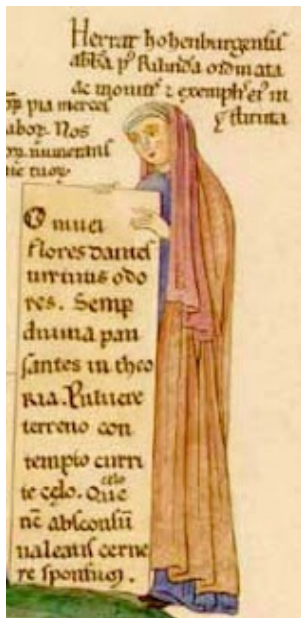 Herrat hohenburgensis
abbā p' Rilinda ordinata
ac monitis ⁊ exemplis ei' in
stituta
pia merces
abor. Nos
munerans
tuor.
O nivei
flores dantes
virtutis odo
res. Semp
divina pau
santes in theo
ria. Pulvere
terreno con
tempto curri
celo
te celo. Que
nc̄ absconsū
valeatis cerne
re sponsum.